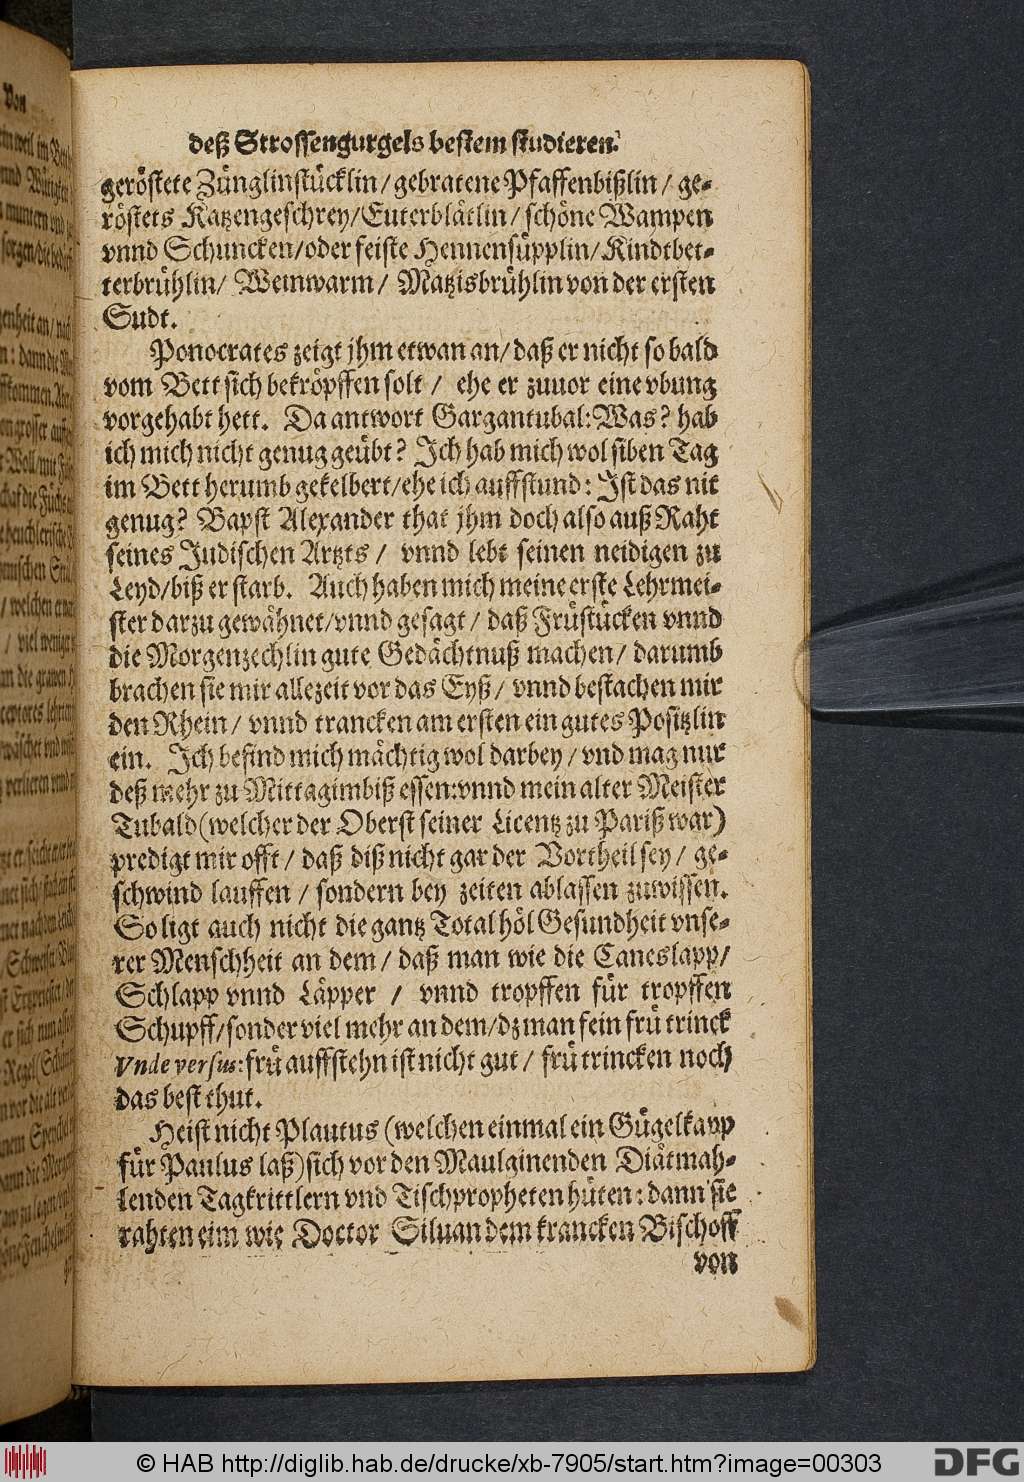 deß Strossengurgels bestem studieren.
geröstete Zünglinstücklin/gebratene Pfaffenbißlin/ge-
röstets Katzengeschrey/Euterblätlin/schöne Wampen
vnnd Schuncken/oder feiste Hennensüpplin/Kindtbet-
terbrühlin/ Weinwarm/ Matzisbrühlin von der ersten
Sudt.
Ponocrates zeigt jhm etwan an/daß er nicht so bald
vom Bett sich bekröpffen solt / ehe er zuuor eine vbung
vorgehabt hett. Da antwort Gargantubal: Was? hab
ich mich nicht genug geübt? Ich hab mich wol siben Tag
im Bett herumb gekelbert/ehe ich auffstund: Ist das nit
genug? Bapst Alexander that jhm doch also auß Raht
seines Judischen Artzts / vnnd lebt seinen neidigen zu
Leyd/biß er starb. Auch haben mich meine erste Lehrmei-
ster darzu gewähnet/vnnd gesagt / daß Früstücken vnnd
die Morgenzechlin gute Gedächtnuß machen/ darumb
brachen sie mir allezeit vor das Eyß/ vnnd bestachen mir
den Rhein/ vnnd trancken am ersten ein gutes Positzlin
ein. Ich befind mich mächtig wol darbey/ vnd mag nur
deß mehr zu Mittagimbiß essen: vnnd mein alter Meister
Tubald (welcher der Oberst seiner Licentz zu Pariß war)
predigt mir offt/ daß diß nicht gar der Vortheil sey/ ge-
schwind lauffen / sondern bey zeiten ablassen zuwissen.
So ligt auch nicht die gantz Total höl Gesundheit vnse-
rer Menschheit an dem/ daß man wie die Caneslapp/
Schlapp vnnd Läpper / vnnd tropffen für tropffen
Schupff/sonder viel mehr an dem/dz man fein frü trinck
Vnde versus: frü auffstehn ist nicht gut/ frü trincken noch
das best thut.
Heist nicht Plautus (welchen einmal ein Gügelkapp
für Paulus laß) sich vor den Maulginenden Diätmah-
lenden Tagkrittlern vnd Tischpropheten hüten: dann sie
rahten eim wie Doctor Siluan dem krancken Bischoff
von
© HAB http://diglib.hab.de/drucke/xb-7905/start.htm?image=00303
DFG